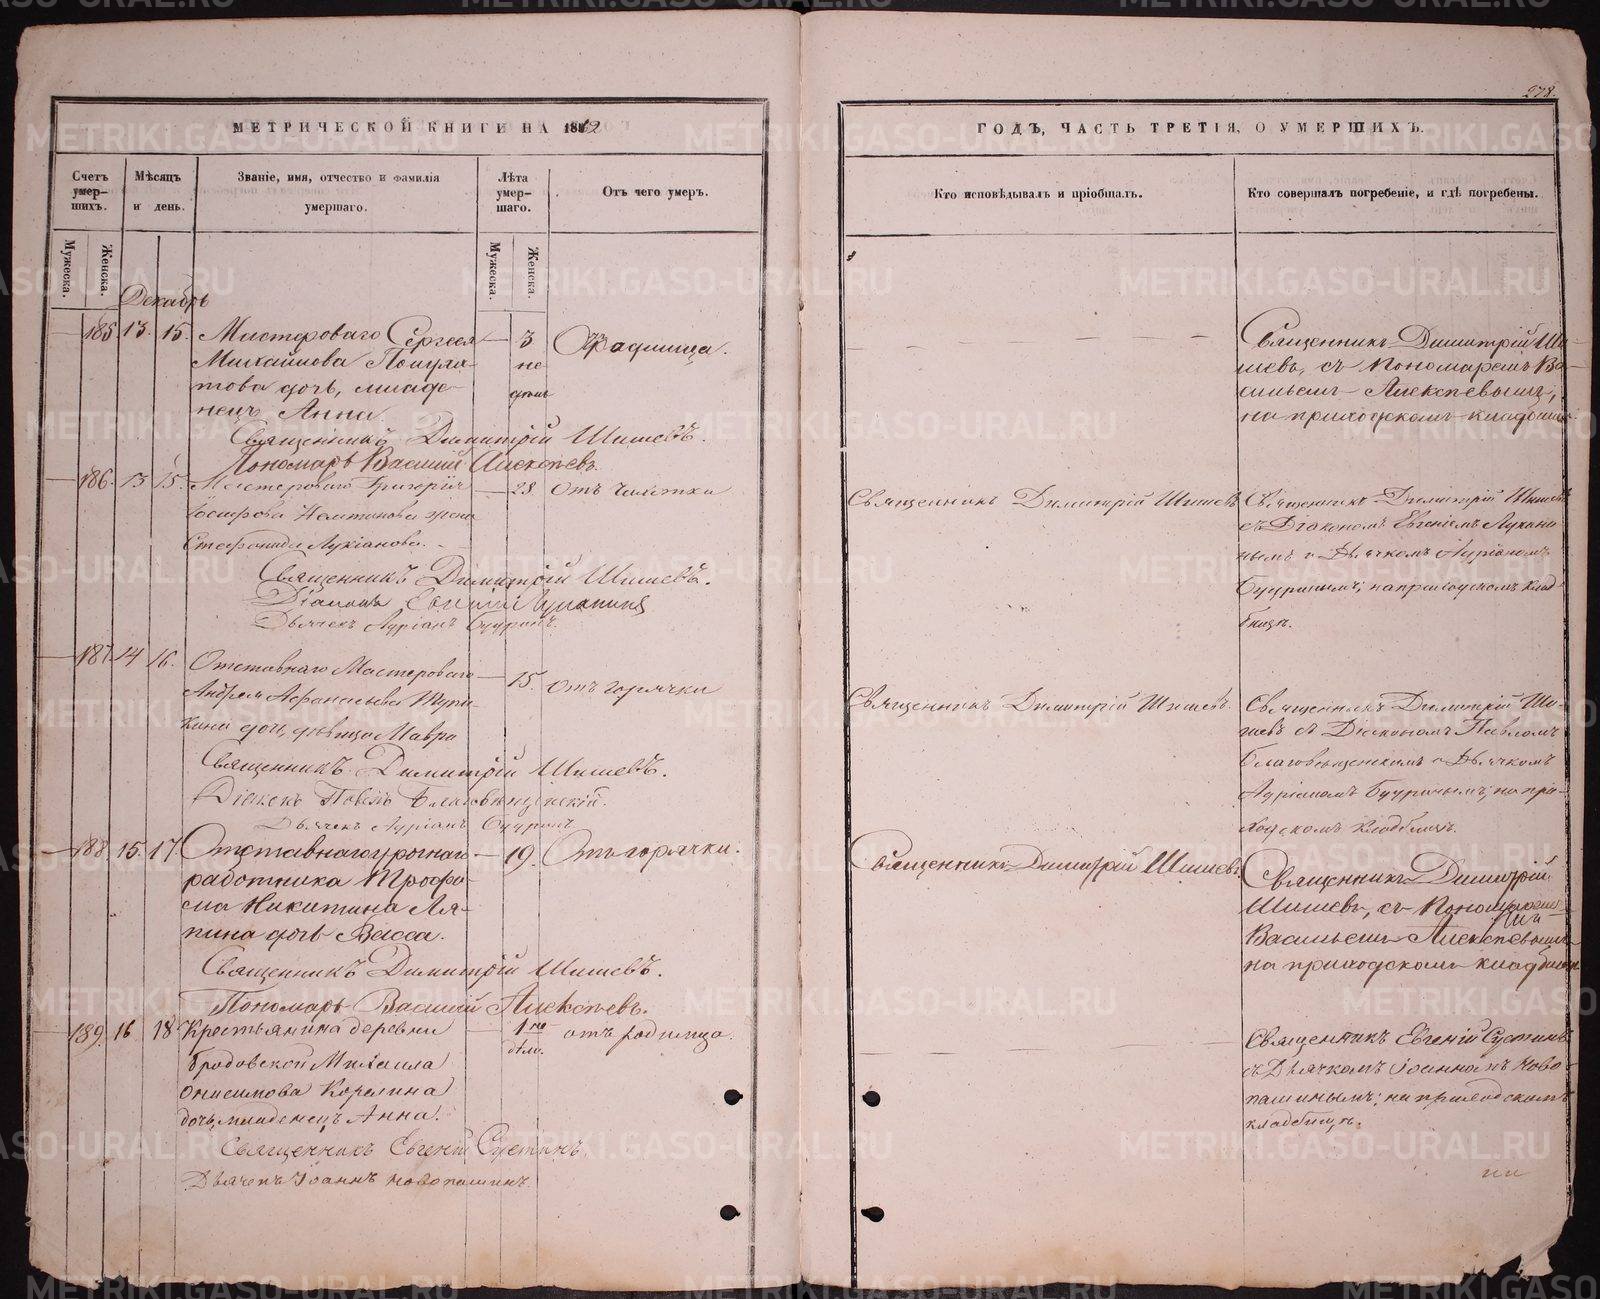 278.
МЕТРИЧЕСКОЙ КНИГИ НА 1862
ГОДЪ, ЧАСТЬ ТРЕТІЯ, О УМЕРШИХЪ.
Счетъ умер-шихъ.
Мѣсяцъ и день.
Званіе, имя, отчество и фамилія умершаго.
Лѣта умер-шаго.
Отъ чего умеръ.
Кто исповѣдывалъ и пріобщалъ.
Кто совершалъ погребеніе, и гдѣ погребены.
Мужеска.
Женска.
Мужеска.
Женска.
Декабрь
185 13. 15. Мастероваго Сергея
Михайлова
това дочь, младе-
нецъ Анна
3
не
дѣль
Священникъ Димитрій Ши-
шевъ, съ Пономаремъ Ва-
сильемъ Алексѣевымъ,
на приходскомъ кладбищѣ
Священникъ Димитрій Шишевъ.
Пономарь Василій Алексѣевъ.
186. 13 15. Мастероваго Григорія
жена
Стефанида Лукіанова.
28 отъ чахотки
Священникъ Димитрій Шишевъ
Священникъ Димитрій Шишевъ
съ Діакономъ Евгеніемъ Лукани-
нымъ и Дьячкомъ
на приходскомъ клад-
бищѣ.
Священникъ Димитрій Шишевъ.
Діаконъ Евгеній Луканинъ
Дьячекъ
187. 14 16. Отставнаго Мастероваго
Андрея Афанасьева
дочь, дѣвица Мавра
15. отъ горячки
Священникъ Димитрій Шишевъ.
Священникъ Димитрій Ши-
шевъ съ Діакономъ Павломъ
Благовѣщенскимъ и Дьячкомъ
на при-
ходскомъ кладбищѣ.
Священникъ Димитрій Шишевъ.
Діаконъ Павелъ Благовѣщенскій.
Дьячекъ
188. 15. 17. Отставнаго урочнаго
работника Трофи-
ма Никитина Ля-
пина дочь Васса.
19. Отъ горячки.
Священникъ Димитрій Шишевъ
Священникъ Димитрій
Шишевъ, съ Пономаремъ
Васильемъ Алексѣевымъ
на приходскомъ кладбищѣ
Священникъ Димитрій Шишевъ.
Пономарь Василій Алексѣевъ.
189. 16 18 Крестьянина деревни
Бродовской Михаила
Онисимова Корелина
дочь, младенецъ Анна.
1 не
дѣли.
отъ родимца.
Священникъ Евгеній Сустинъ
съ Дьячкомъ Іоанномъ Ново-
пашинымъ; на приходскомъ
кладбищѣ.
Священникъ Евгеній Сустинъ.
Дьячекъ Іоаннъ Новопашинъ.
METRIKI.GASO-URAL.RU